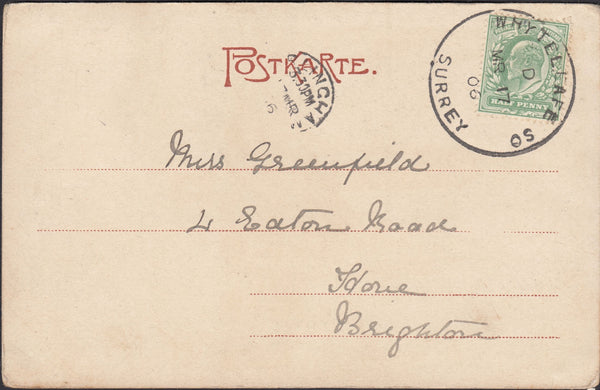 POSTKARTE.
WHYTELEAFE SO
D
MR 17
06
SURREY
HALF PENNY
3.30PM
MR
Miss Greenfield
4 Eaton Road
Hove
Brighton